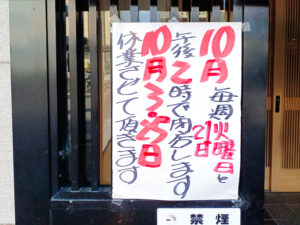 10月 毎週火曜日と
21日
午後2時で閉店します
10月3.25日
休業させて頂きます
禁煙